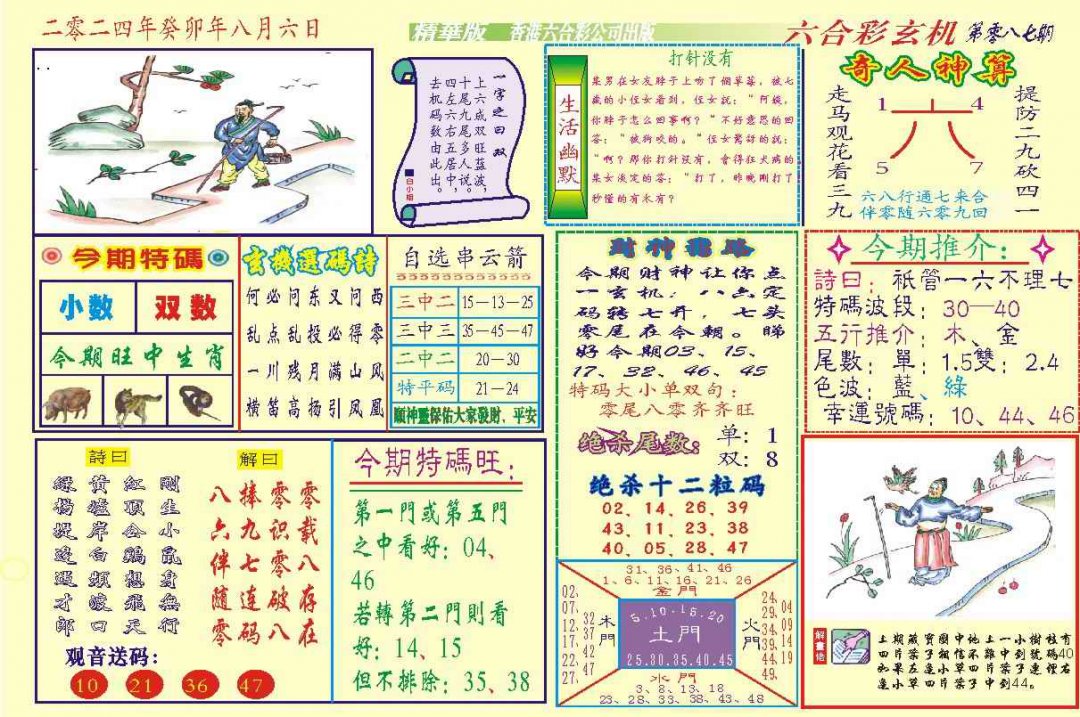 二零二四年癸卯年八月六日
精華版 香港六合彩公司出版
六合彩玄机 第零八七期
一字之曰双
上六成双旺蓝波,
十尾双多说中。
四左六右五居
去机码数由此出。
白小姐
生活幽默
打针没有
某男在女友脖子上吻了個草莓，被七
歲的小侄女看到，侄女説："阿姨，
你脖子怎么回事啊？"不好意思的回
答："被狗咬的。"侄女驚訝的説：
"啊？那你打针没有，會得狂犬病的
某女淡定的答："打了，昨晚剛打了
秒懂的有木有？
奇人神算
走马观花看三九
提防二九砍四一
1 4
六
5 7
六八行通七来合
伴零随六零九回
今期特碼
小数 双数
今期旺中生肖
玄機選碼詩
何必问东又问西
乱点乱投必得零
一川残月满山风
横笛高扬引凤凰
自选串云箭
三中二 15—13—25
三中三 35—45—47
二中二 20—30
特平码 21—24
願神靈保佑大家發財、平安
财神指路
今期财神让你点
一玄机，八六定
码转七开，七头
零尾在今朝。睇
好今期03、15、
17、32、46、45
特码大小单双句：
零尾八零齐齐旺
绝杀尾数：
单：1
双：8
绝杀十二粒码
02、14、26、39
43、11、23、38
40、05、28、47
今期推介：
詩曰：祇管一六不理七
特碼波段：30—40
五行推介：木、金
尾數：單：1.5雙：2.4
色波：藍、綠
幸運號碼：10、44、46
詩曰
剛生小鼠身無行
红顶公鷄想飛天
黄墟岸白頻渡口
緑楊堤邊遇才郎
解曰
零载八存在
零识零破八
捧九七连码
八六伴随零
观音送码：
10 21 36 47
今期特碼旺：
第一門或第五門
之中看好：04、
46
若轉第二門則看
好：14、15
但不排除：35、38
31、36、41、46
1、6、11、16、21、26
金門
02、07、12、17、22、27
32、37、42、47
木門
5.10.15.20
土門
25.30.35.40.45
火門
24、29、34、39、44、49
04、09、14、19
水門
3、8、13、18
23、28、33、38、43、48
解畫佬
上期藏寶圖中地上一小樹枝有
四片葉子相信不難中到號碼40
如果左邊小草四片葉子連裡右
邊小草四片葉子中到44。